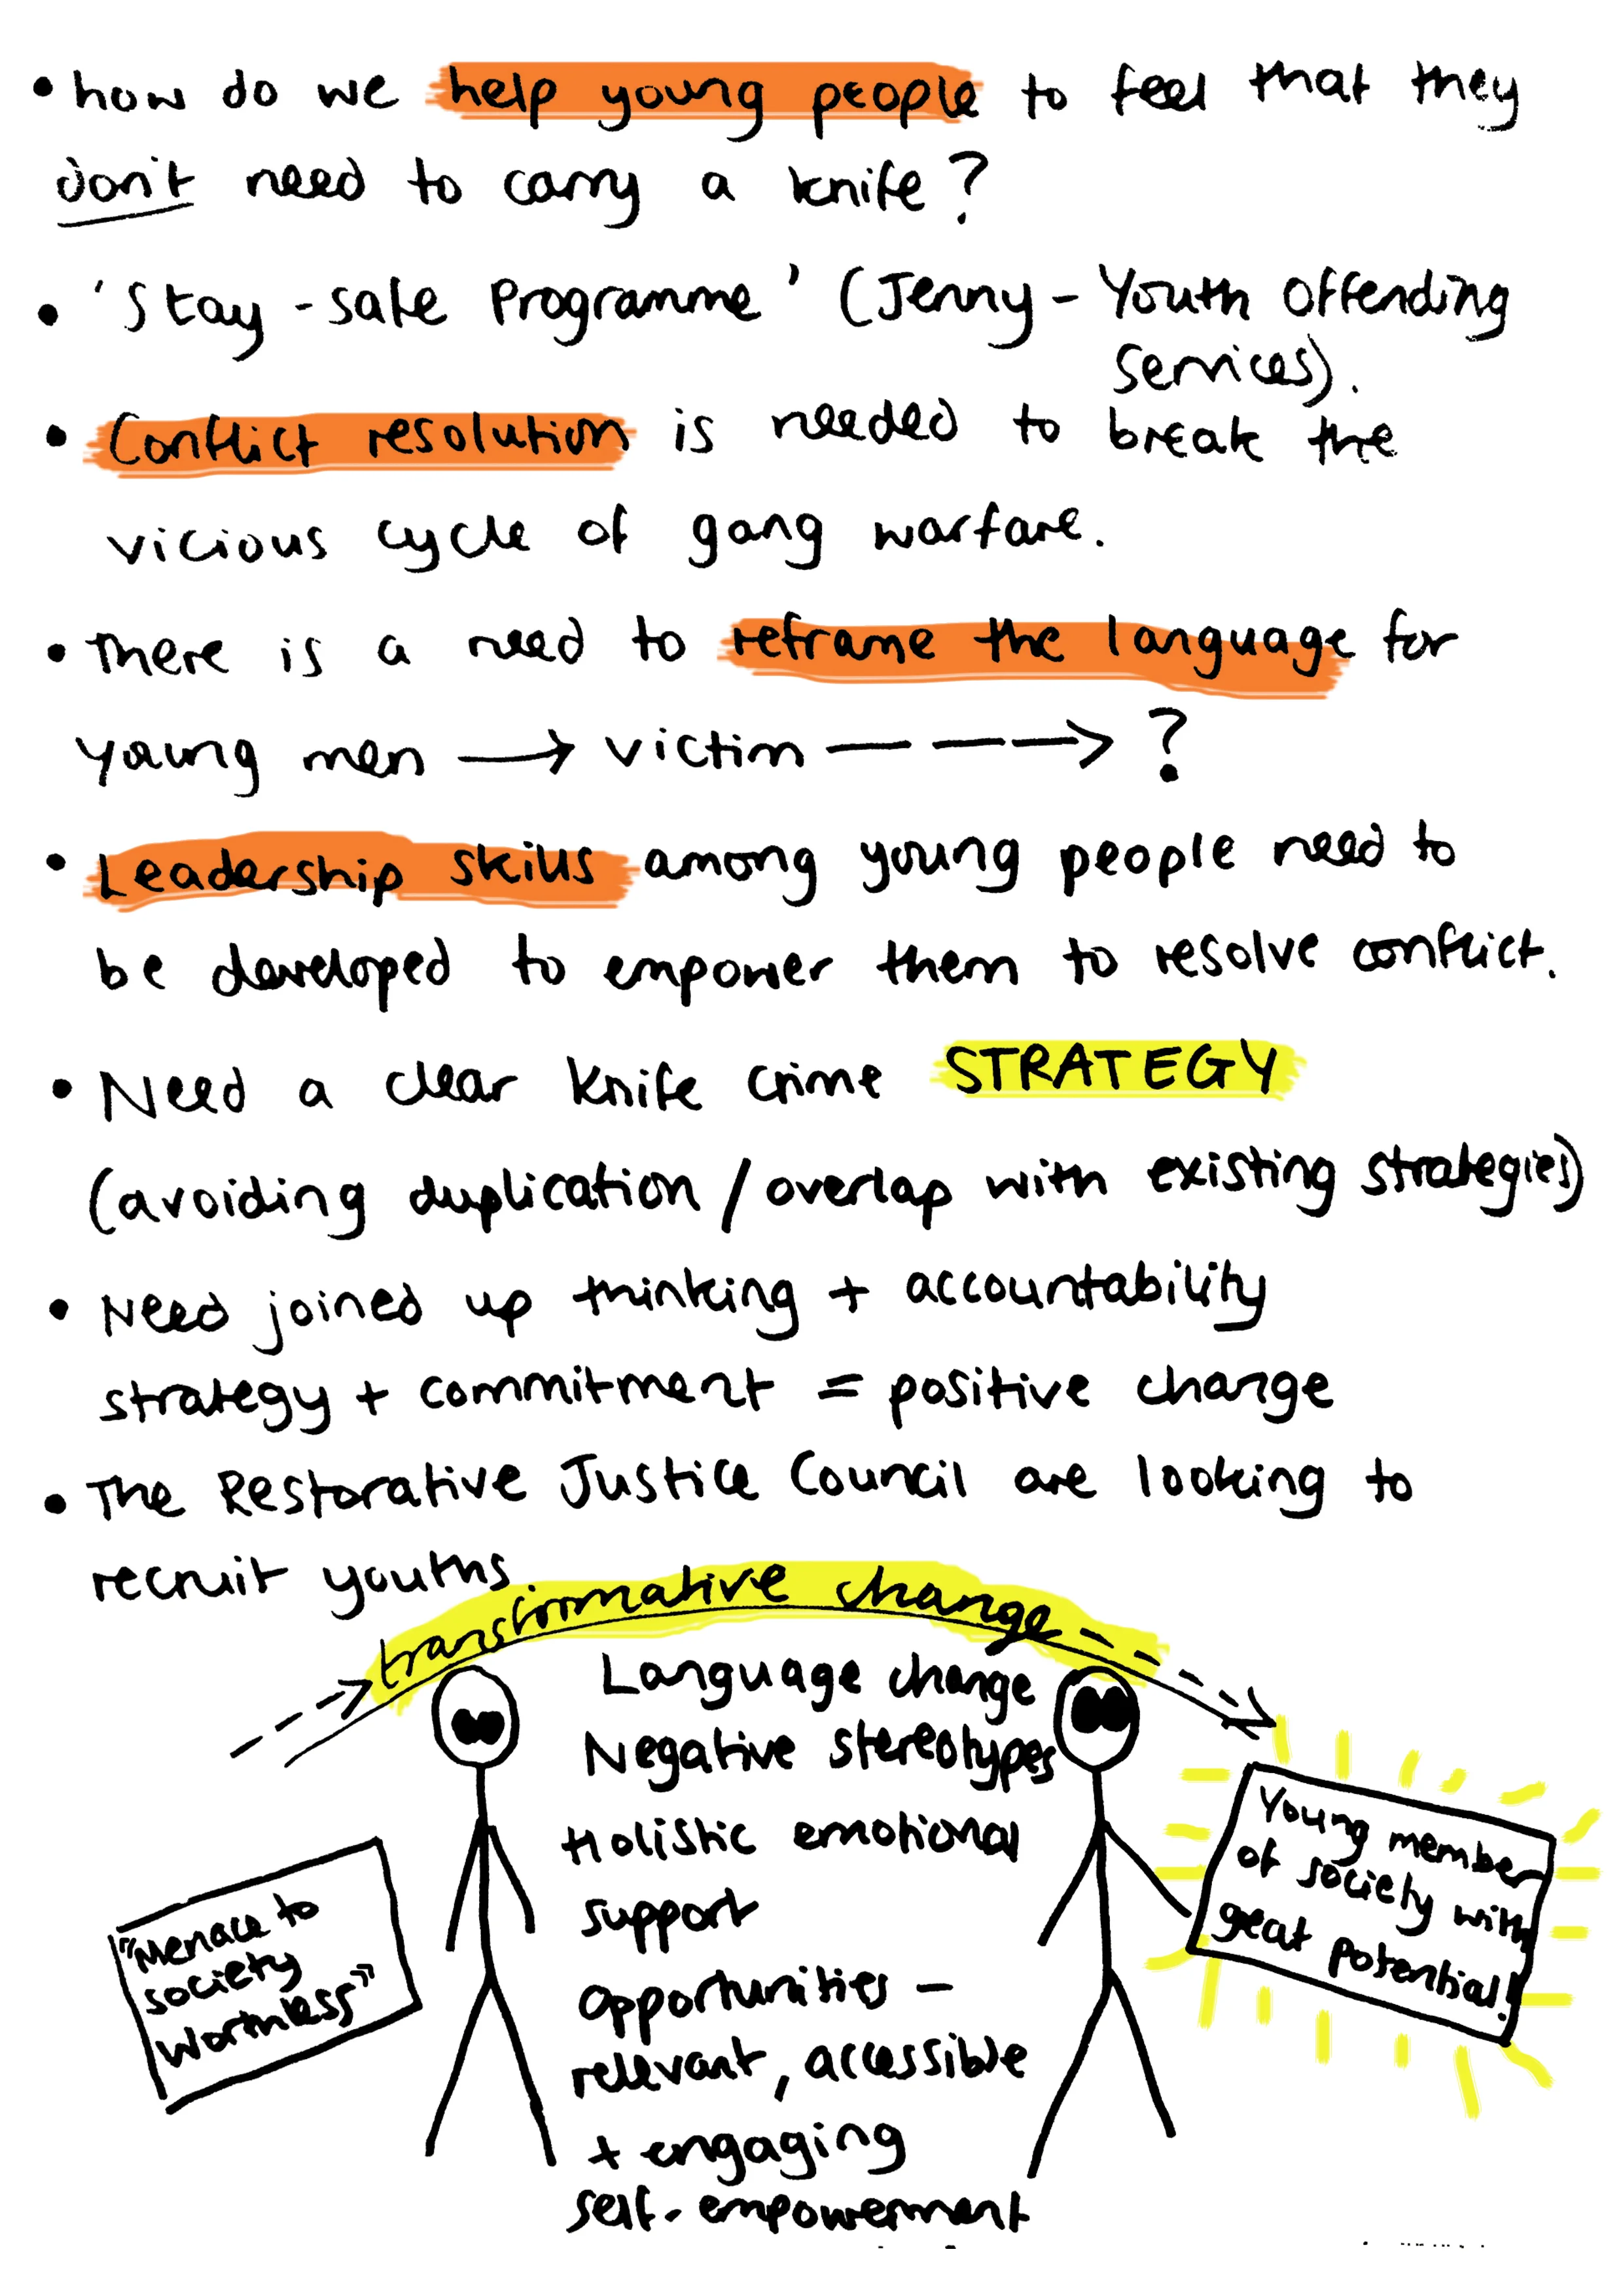 • how do we help young people to feel that they
don't need to carry a knife?
• 'Stay-safe Programme' (Jenny - Youth Offending
Services).
• Conflict resolution is needed to break the
vicious cycle of gang warfare.
• There is a need to reframe the language for
young men → victim - - -> ?
• Leadership skills among young people need to
be developed to empower them to resolve conflict.
• Need a clear knife crime STRATEGY
(avoiding duplication / overlap with existing strategies)
• Need joined up thinking + accountability
strategy + commitment = positive change
• The Restorative Justice Council are looking to
recruit youths.
transformative change
Language change
Negative stereotypes
Holistic emotional
support
Opportunities -
relevant, accessible
+ engaging
self-empowerment
"Menace to
society
Worthless"
Young member
of society with
great potential!